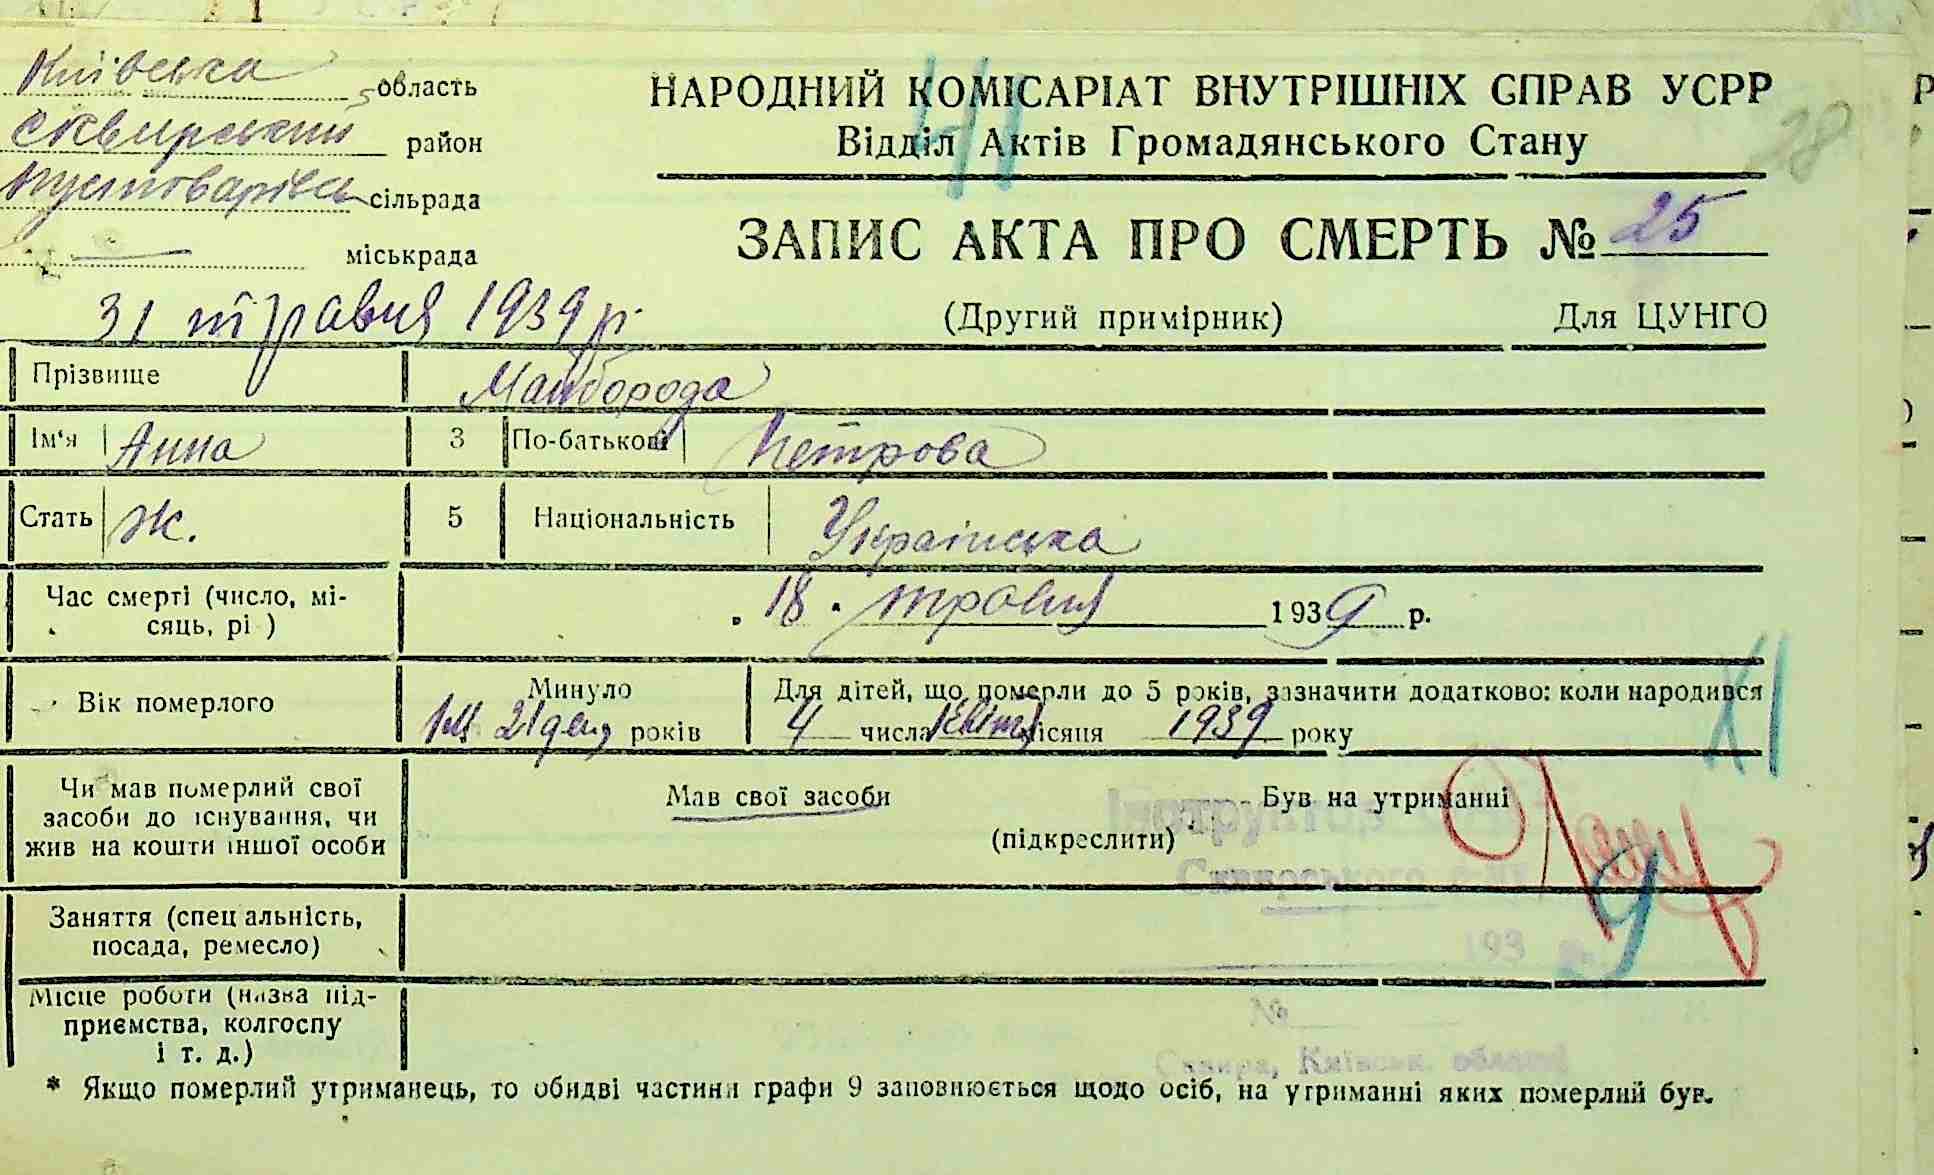 Київська область
Сквирський район
Пустоварівськ сільрада
— міськрада
НАРОДНИЙ КОМІСАРІАТ ВНУТРІШНІХ СПРАВ УСРР
Відділ Актів Громадянського Стану
28
ЗАПИС АКТА ПРО СМЕРТЬ № 25
31 травня 1939 р.
(Другий примірник) Для ЦУНГО
Прізвище Майборода
Ім'я Анна 3 По-батькові Петрова
Стать Ж. 5 Національність Українська
Час смерті (число, мі-
сяць, рі )
18. травня 1939 р.
Вік померлого
Минуло
1 м 21 день років
Для дітей, що померли до 5 років, зазначити додатково: коли народився
4 числа квітн місяця 1939 року
XI
Чи мав померлий свої
засоби до існування, чи
жив на кошти іншої особи
Мав свої засоби Був на утриманні
(підкреслити)
Інструктор
Сквирського
9
Заняття (спец альність,
посада, ремесло)
193
Місце роботи (назва під-
приємства, колгоспу
і т. д.)
№
Сквира, Київськ. області
* Якщо померлий утриманець, то обидві частини графи 9 заповнюється щодо осіб, на утриманні яких померлий був.